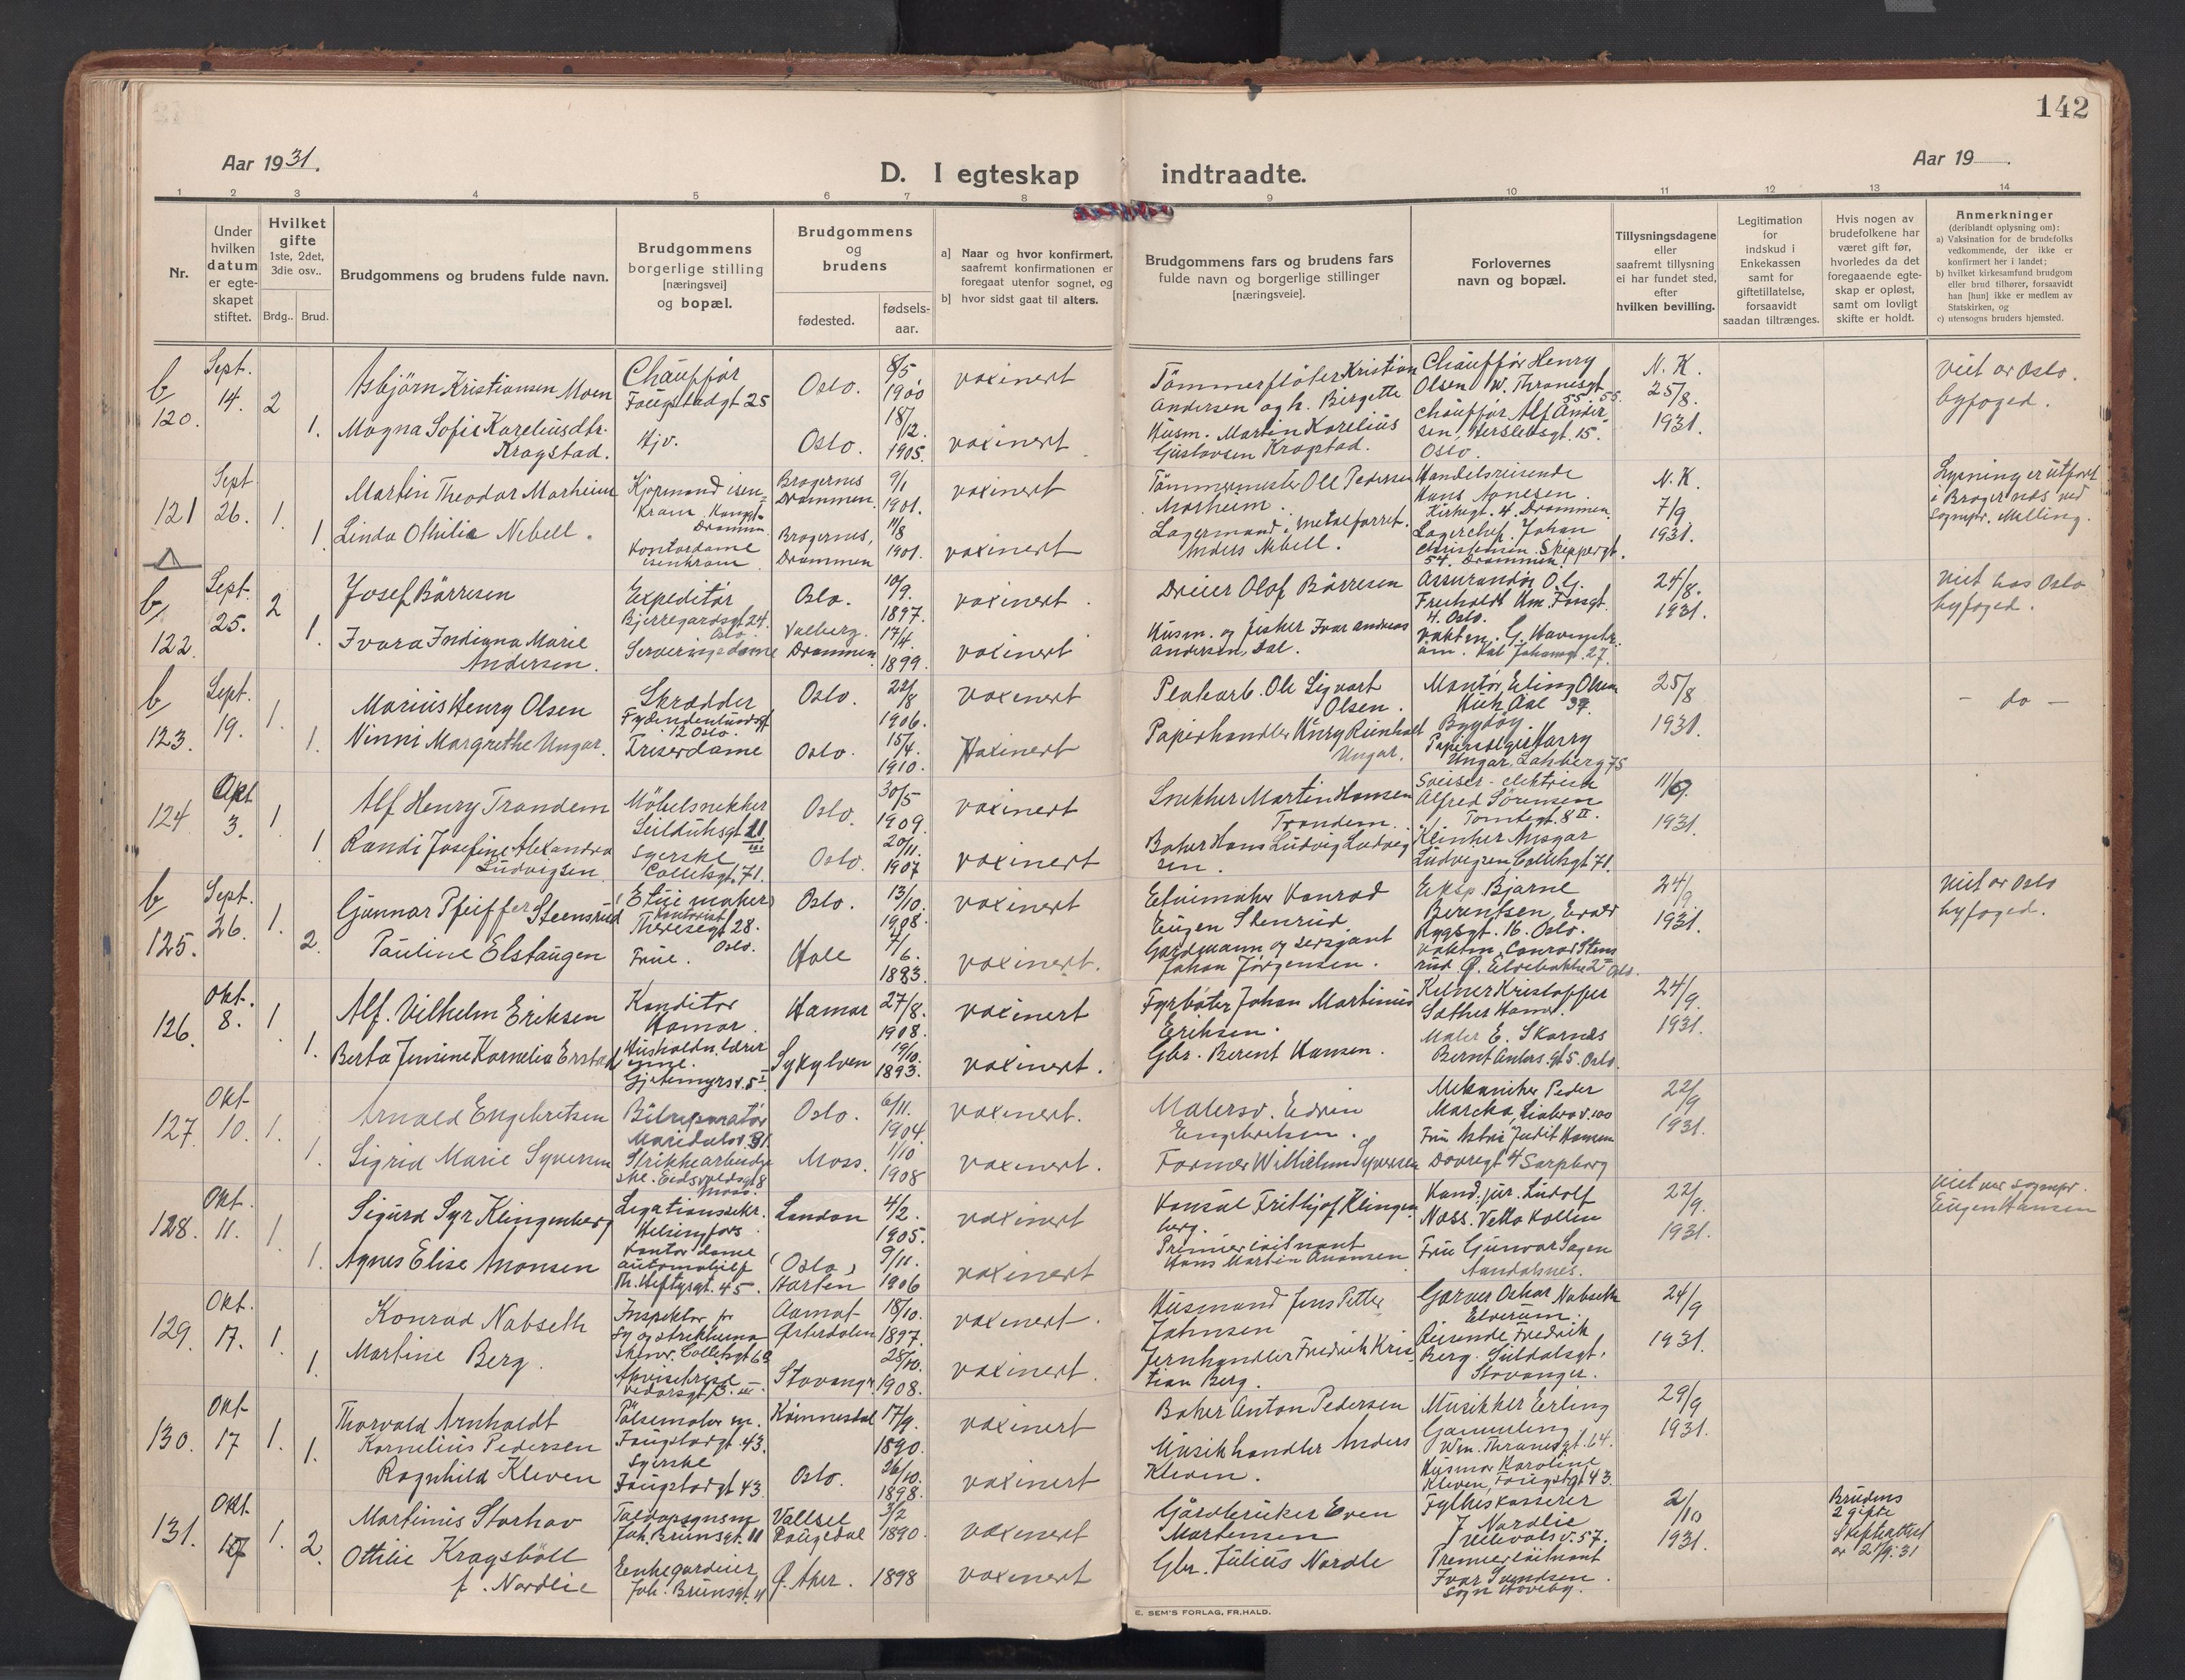 142
Aar 1931.
D. I egteskap indtraadte.
Aar 19
1 2 3 4 5 6 7 8 9 10 11 12 13 14
Nr.
Under hvilken datum er egteskapet stiftet.
Hvilket gifte 1ste, 2det, 3die osv..
Brdg.. Brud.
Brudgommens og brudens fulde navn.
Brudgommens borgerlige stilling [næringsvei] og bopæl.
Brudgommens og brudens
fødested.
fødsels-aar.
a] Naar og hvor konfirmert, saafremt konfirmationen er foregaat utenfor sognet, og
b] hvor sidst gaat til alters.
Brudgommens fars og brudens fars fulde navn og borgerlige stillinger [næringsveie].
Forlovernes navn og bopæl.
Tillysningsdagene eller saafremt tillysning ei har fundet sted, efter hvilken bevilling.
Legitimation for indskud i Enkekassen samt for giftetillatelse, forsaavidt saadan tiltrænges.
Hvis nogen av brudefolkene har været gift før, hvorledes da det foregaaende egteskap er opløst, samt om lovligt skifte er holdt.
Anmerkninger (deriblandt oplysning om):
a) Vaksination for de brudefolks vedkommende, der ikke er konfirmert her i landet;
b) hvilket kirkesamfund brudgom eller brud tilhører, forsaavidt han [hun] ikke er medlem av Statskirken, og
c) utensogns bruders hjemsted.
b 120. Sept. 14. 2 Asbjörn Kristiansen Moen Chaufför Fougstadgt 25 Oslo. 8/5 1900 vaxinert Tömmerflöter Kristian Andersen og h. Birgette Chauffør Henry Olsen W. Thranesgt. 55 N. K. 25/8. 1931. viet av Oslo. byfoged.
1. Magna Sofie Kareliusdtr. Kragstad. Hjv. Oslo. 18/2. 1905. vaxinert Husm. Martin Karelius Gustavsen Kragstad. Chauffør Alf Andersen, Herslebsgt. 15. Oslo.
121 Sept 26. 1. Martin Theodor Marheim Kjøpmand isenkram Drammen Bragernes Drammen. 9/1 1901. vaxinert Tömmermester Ole Pedersen Marheim. Handelsreisende Hans Kirkegt. 4. Drammen. N. K. 7/9 1931. Lysning er utført i Bragernæs ved Sognepr. Melling.
1 Linda Othilia Nebell. Kontordame isenkram Bragernes, Drammen 11/8 1901. vaxinert Lagermand i metalforret. Anders Nebell. Lagerchef Johan Christensen Skippergt. 54. Drammen.
b 122. Sept. 25. 2 Josef Börresen Expeditör Bjerregaardsgt 24. Oslo Oslo. 10/9. 1897. vaxinert. Dreier Olaf Börresen Assurandör O.G. 4. Oslo. 24/8. 1931. viet hos Oslo byfoged.
1. Ivara Indiana Marie Andersen. Serveringsdame Drammen. 17/4. 1899. vaxinert Husm. og fisker Ivar Andreas Andersen, Dal. Karl Johansgt. 27.
b 123. Sept. 19. 1. Marius Henry Olsen Skrædder 12 Oslo. Oslo. 22/8 1906. vaxinert Plakarb. Ole Sigvart Olsen. Montör Erling Olsen 37. Bygdöy. 25/8 1931. – do –
1. Ninni Margrethe Ungar. Friserdame Oslo. 15/4. 1910. Vaxinert Papirhandler Henry Reinholt Ungar. Harry Ungar, Lakkberg 75
124 Okt 3. 1. Alf Henry Trandem Möbelsnekker Seilduksgt 21 Oslo. 30/5 1909. vaxinert Snekker Martin Hansen Trandem. Sveiser - elektrisk Alfred Sörensen Tomtegt. 8 II. 11/9. 1931.
1 Randi Josefine Alexandra Ludvigsen. Syerske Collettsgt. 71. Oslo. 20/11. 1907 vaxinert Baker Hans Ludvig Ludvigsen. Ansgar Ludvigsen, Collettsgt 71.
b 125. Sept. 26. 1. Gunnar Pfeiffer Steensrud Etuimaker Theresegt 28. Oslo. Oslo. 13/10. 1908. vaxinert Etuimaker Konrad Eugen Stenrud. Eksp Bjarne Berentsen, 16. Oslo. 24/9 1931. viet av Oslo byfoged.
2 Pauline Elstaugen Frue. Hole 7/6. 1883 vaxinert. Gardmann og sersjant Johan Jörgensen. Conrad Stensrud 2 Oslo.
126. Okt. 8. 1. Alf. Vilhelm Eriksen Konditor Hamar. Hamar 27/8. 1908. vaxinert Fyrböter Johan Martinius Eriksen. Kelner Kristoffer Sæther Hamar. 24/9. 1931.
1. Berta Jensine Kornelia Erstad Husholdn. lærerinne. Gjetemyrsv. 5 I Sykylven 19/10. 1893. vaxinert. Gbr. Berent Hansen. Maler E. Skarnæs Bernt Ankers gt 5. Oslo.
127. Okt 10. 1. Arnold Engebretsen Bilreparatör Maridalsv. 31. Oslo. 6/11. 1904. vaxinert. Malersv. Edvin Engebretsen. Mekaniker Peder 100 22/9 1931.
1. Sigrid Marie Syversen Strikkearbeiderske. Eidsvoldsgt 8 Moss. Moss. 1/10 1908 vaxinert. Former Wilhelm Syversen Fru Astrid Judit Hansen Dovregt 4 Sarpborg
128. Okt. 11. 1. Sigurd Syr Klingenberg Legationssekr. Helsingfors London 4/2. 1905. vaxinert Konsul Frithjof Klingenberg. Kand. jur. Ludolf Næss. Vetta Kollen 22/9. 1931. viet ved sognepr. Eugen Hansen
1. Agnes Elise Monsen Kontordame automobilf Th. Heftyesgt. 45. (Oslo) Horten 9/11. 1906 vaxinert Premierløitnant Hans Martin Fru Gunvor Sagen Aandalsnes.
129. Okt. 17. 1. Konrad Nabseth Inspektør for Sy og strikkema Collettsgt 69 Aamot Østerdalen 18/10. 1897. vaxinert. Husmand Jens Petter Johnsen Garver Oskar Nabseth Elverum. 24/9 1931.
1. Martine Berg. Stavanger 28/10. 1908. vaxinert. Jernhandler Fredrik Kristian Berg. Reisende Fredrik Berg. Suldalsgt. Stavanger.
130. Okt 17 1. Thorvald Arnholdt Kornelius Pedersen Pölsemaker m. Fougstadgt. 43. 17/9. 1890. vaxinert Baker Anton Pedersen Musikker Erling Wm. Thranesgt. 64. 29/9 1931.
1. Ragnhild Kleven Syerske Fougstadgt 43. Oslo. 26/10. 1898. vaxinert Musikhandler Anders Kleven. Husmor Karoline Kleven, Fougstgt 43.
131. Okt. 17 1. Martinius Storhav Joh. Brunsgt. 11 Vallset 3/2 1890. vaxinert Gårdbruker Even Martensen Fylkeskasserer J Nordlie Ullevålsv. 57. 2/10 1931. Brudens 2 gifte Skifteattest av 21/9. 31
2. Ottilie Kragsböll f. Nordlie Enkegarderier Joh. Brunsgt. 11 Ø. Aker. 1898 vaxinert Gbr. Julius Nordle Premierløitnant Ivar Svendsen.
E. SEM'S FORLAG, FR.HALD.